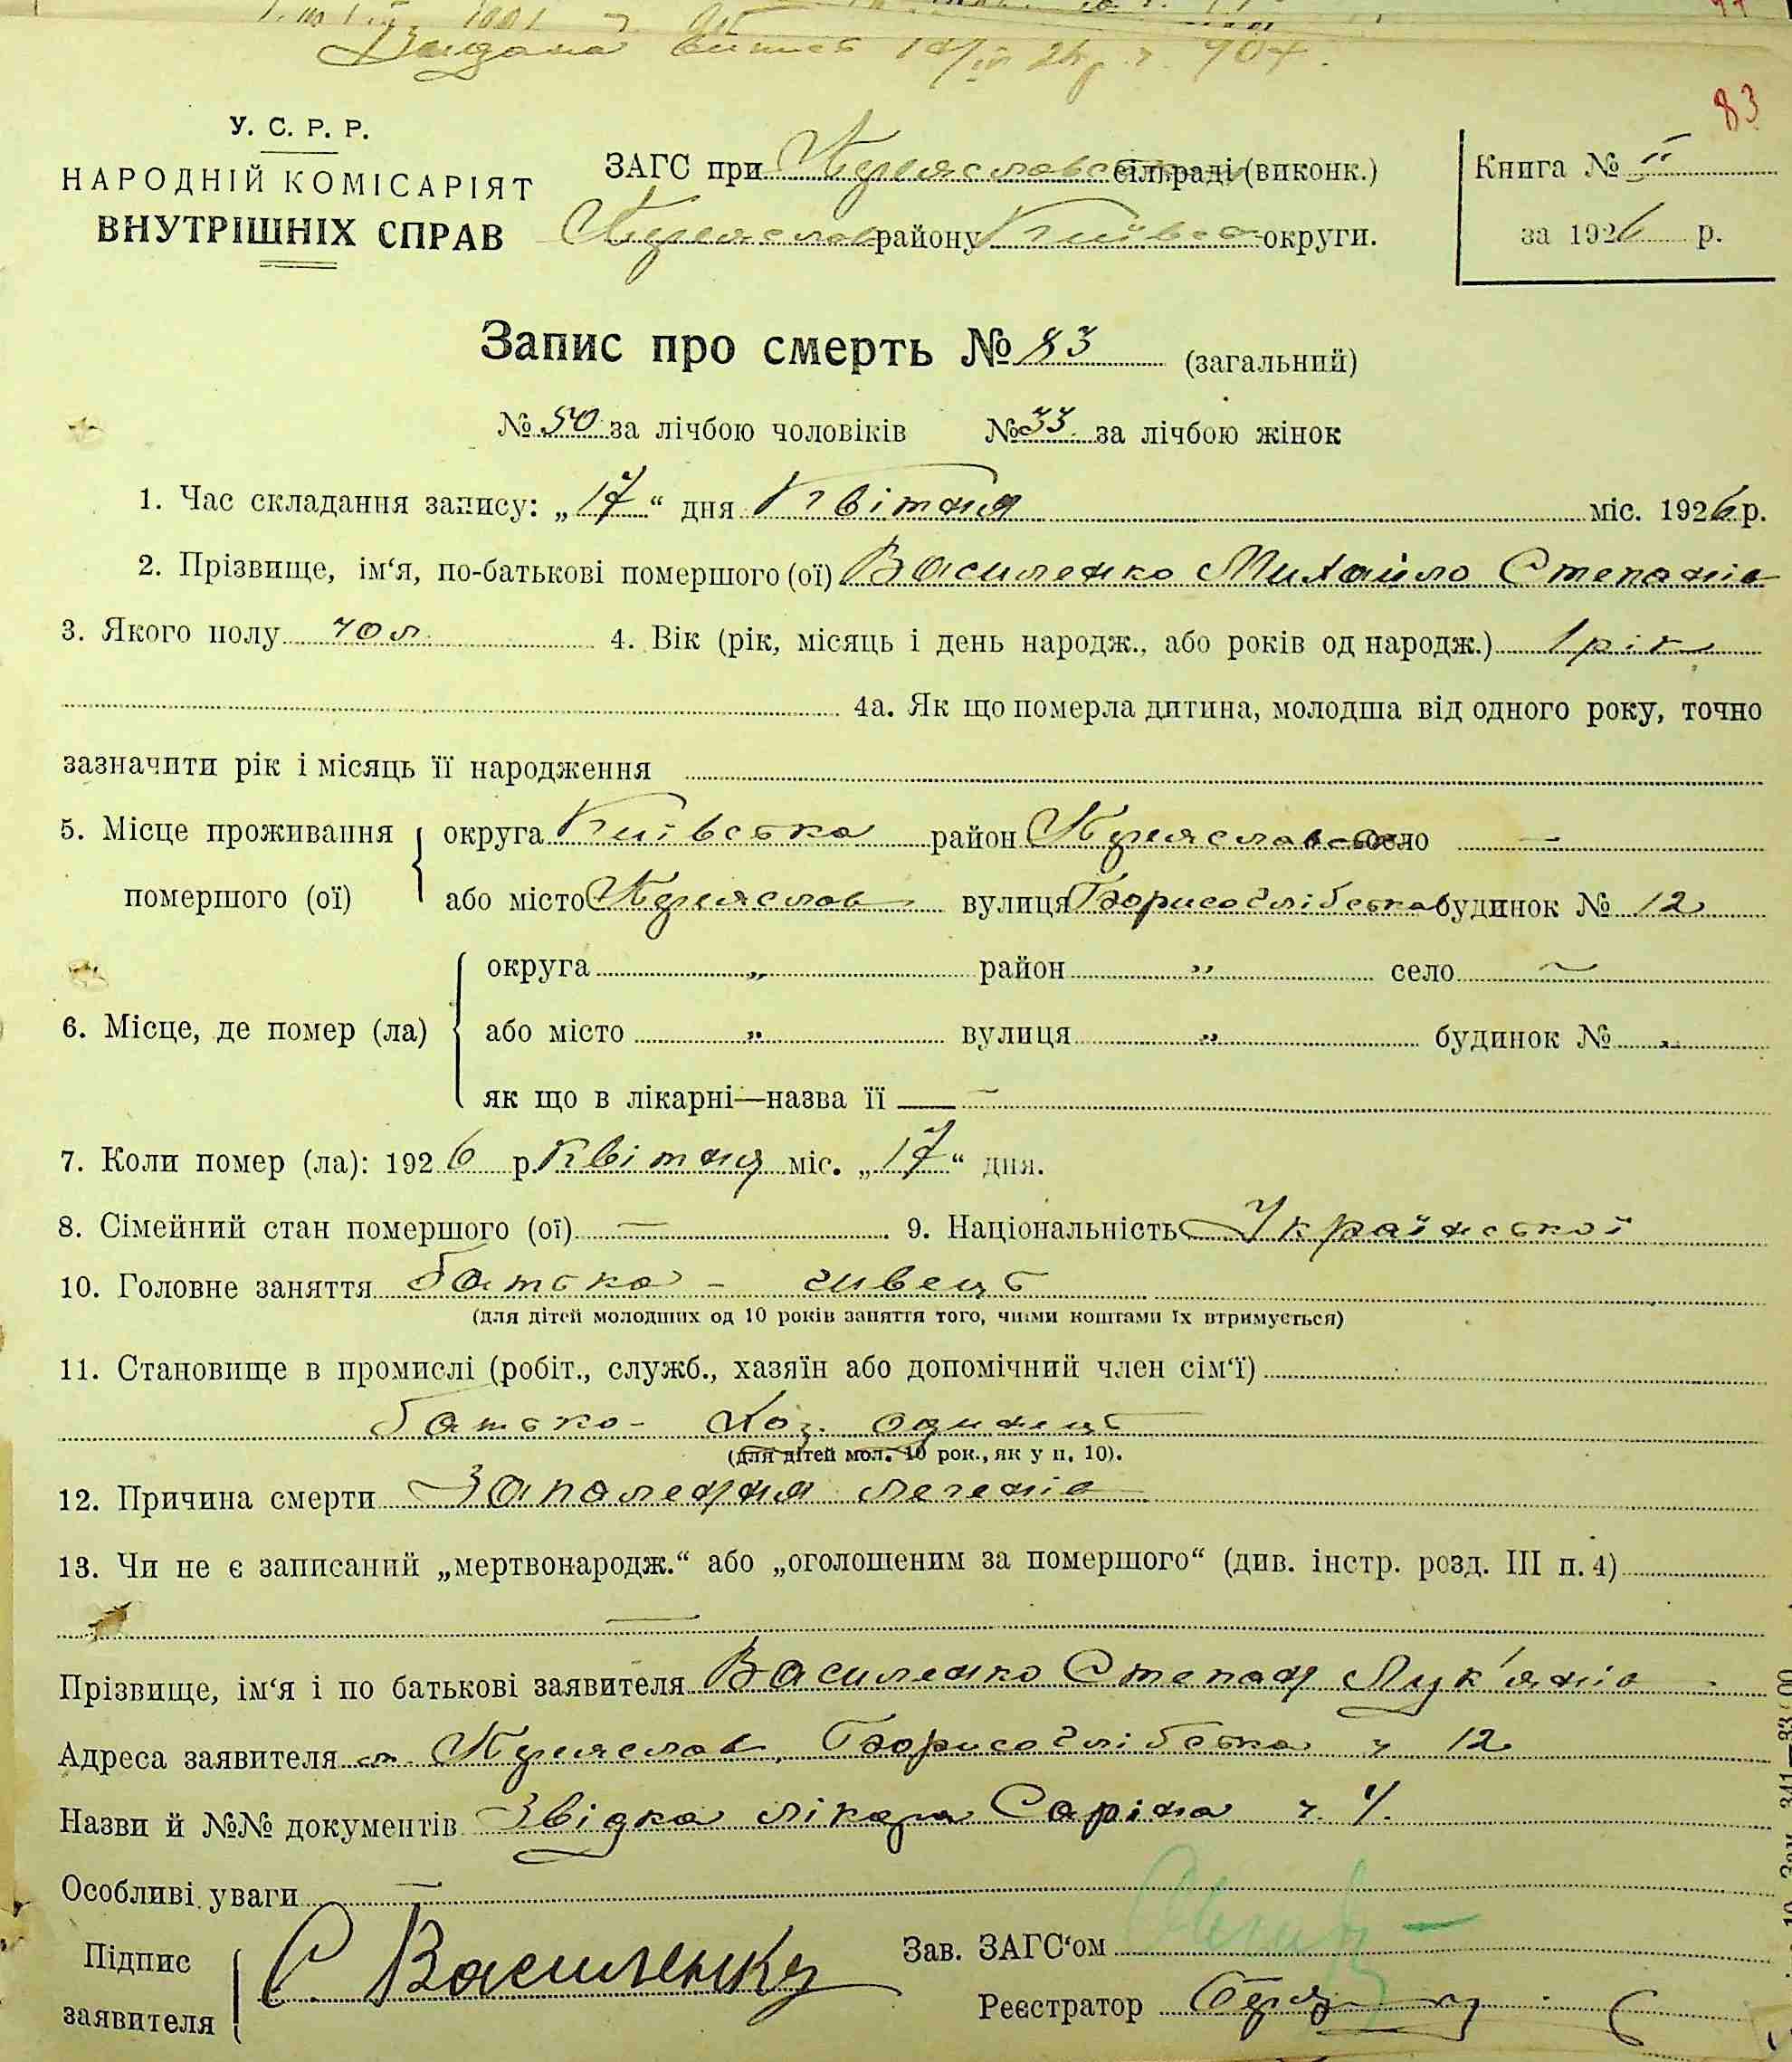 Видана витяг 14/IV 26 р. ч. 904.
83
У. С. Р. Р.
НАРОДНІЙ КОМІСАРІЯТ
ВНУТРІШНІХ СПРАВ
ЗАГС при Переяславськ сільраді (виконк.)
Переяслав району Київсь округи.
Книга № II
за 1926 р.
Запис про смерть № 83 (загальний)
№ 50 за лічбою чоловіків № 33 за лічбою жінок
1. Час складання запису: „17“ дня Квітня міс. 1926 р.
2. Прізвище, ім‘я, по-батькові помершого (ої) Василенко Михайло Степанів
3. Якого полу чол. 4. Вік (рік, місяць і день народж., або років од народж.) 1 рік
4а. Як що померла дитина, молодша від одного року, точно
зазначити рік і місяць її народження
5. Місце проживання помершого (ої) округа Київська район Переяславськ село —
або місто Переяслав вулиця Борисоглібська будинок № 12
6. Місце, де помер (ла) округа „ район „ село —
або місто „ вулиця „ будинок № „
як що в лікарні—назва її —
7. Коли помер (ла): 1926 р. Квітня міс. „17“ дня.
8. Сімейний стан помершого (ої) — 9. Національність Української
10. Головне заняття батька - швець
(для дітей молодших од 10 років заняття того, чиїми коштами їх втримується)
11. Становище в промислі (робіт., служб., хазяїн або допомічний член сім‘ї)
батько - хоз. одинець
(для дітей мол. 10 рок., як у п. 10).
12. Причина смерти Запалення легенів
13. Чи не є записаний „мертвонародж.“ або „оголошеним за помершого“ (див. інстр. розд. III п. 4)
—
Прізвище, ім‘я і по батькові заявителя Василенко Степан Лук'янів
Адреса заявителя м. Переяслав, Борисоглібська ч 12
Назви й №№ документів Звідка лікаря Саріна ч.
Особливі уваги —
Підпис заявителя С. Василенко
Зав. ЗАГС‘ом
Реєстратор